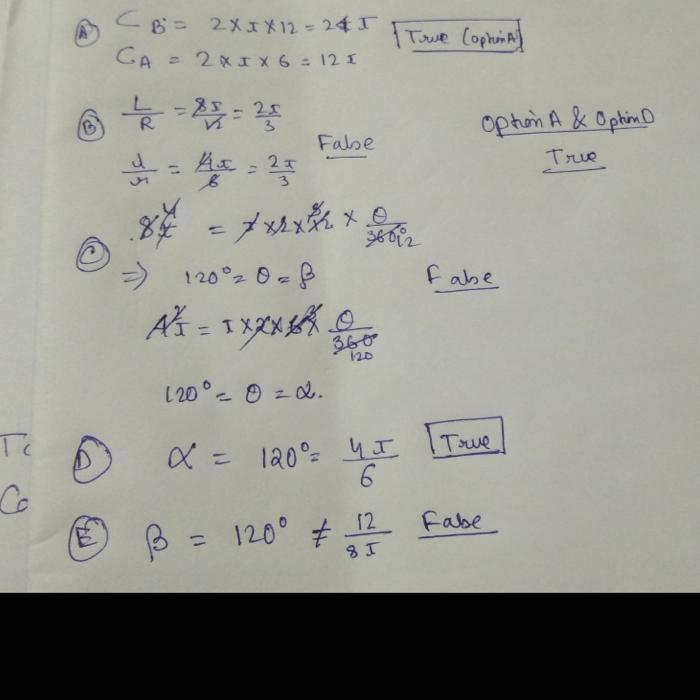 Ⓐ C_B = 2 × π × 12 = 24π True (option A)
C_A = 2 × π × 6 = 12π
Ⓑ L/R = 8π/12 = 2π/3
False
l/r = 4π/6 = 2π/3
Option A & Option D
True
Ⓒ 8π = π × 2 × 12 × θ/360°
⇒ 120° = θ = β False
4π = π × 2 × 6 × θ/360
120
120° = θ = α.
Ⓓ α = 120° = 4π/6 True
Ⓔ β = 120° ≠ 12/8π False